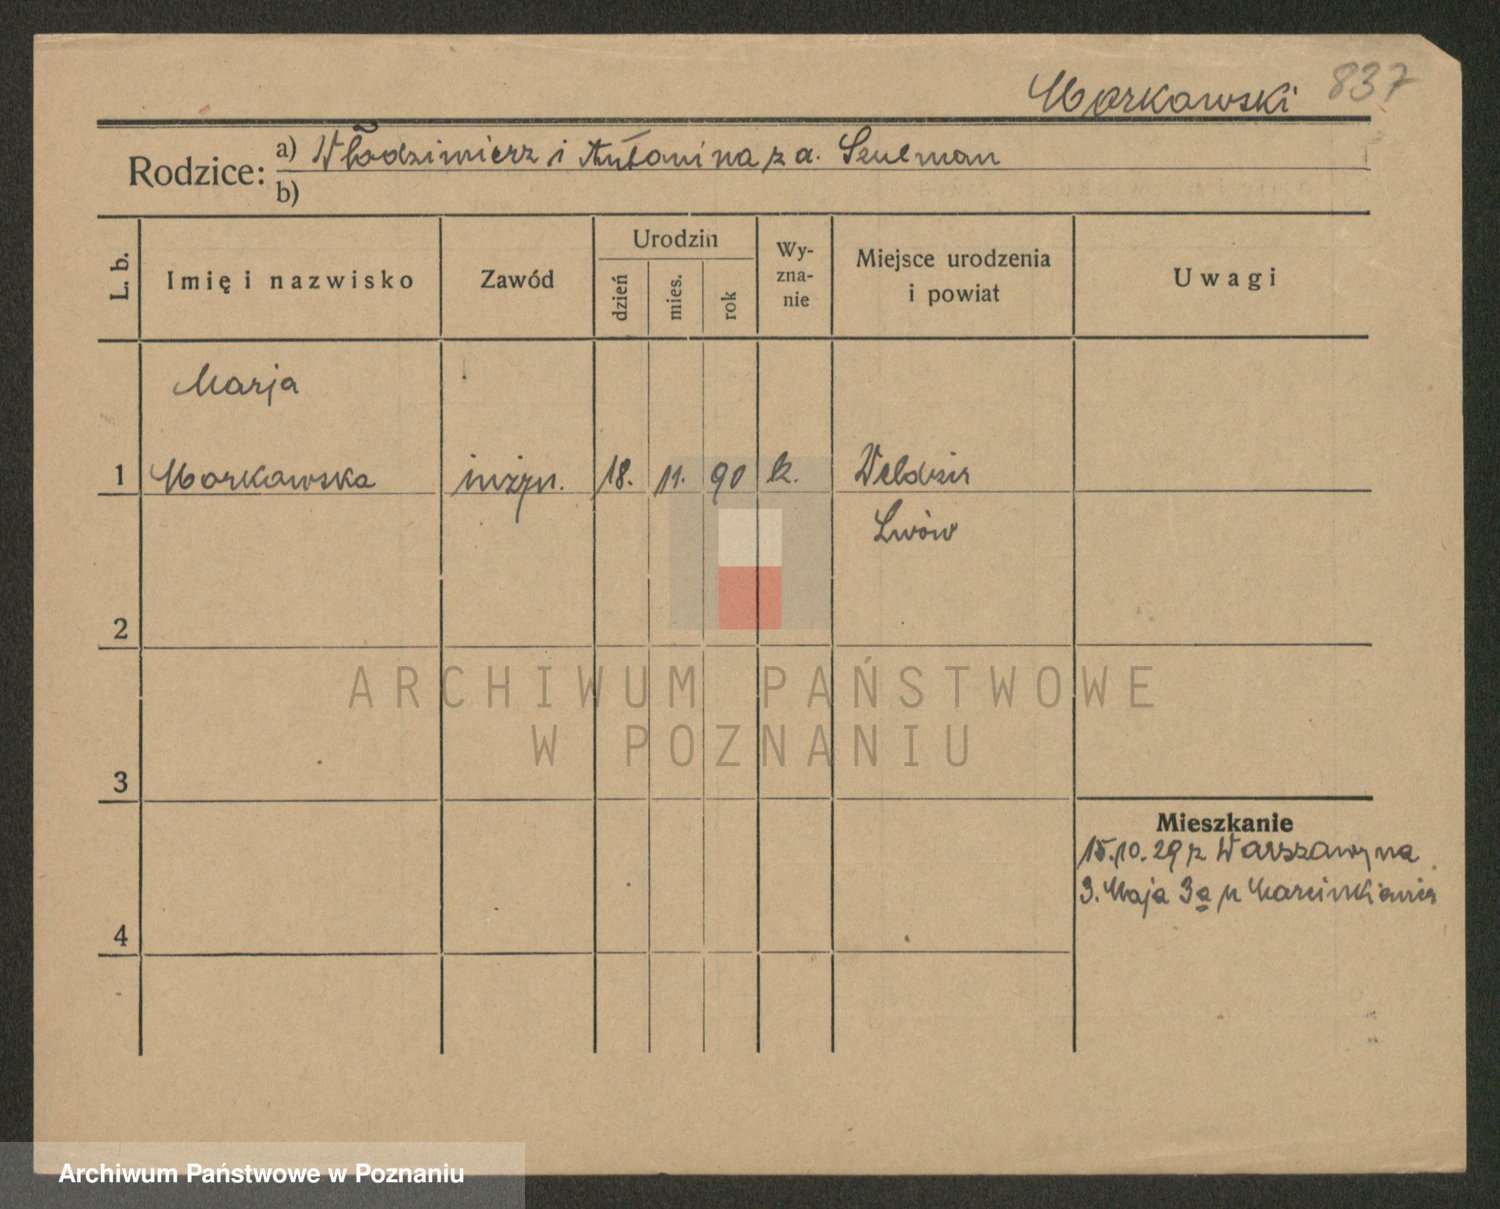 Morkowski 837
Rodzice: a) Włodzimierz i Antonina z d. Szulman
b)
L. b. Imię i nazwisko Zawód Urodzin dzień mies. rok Wy-zna-nie Miejsce urodzenia i powiat Uwagi
Marja
1 Morkowska inżyn. 18. 11. 90 k. Weldzir
Lwów
2
3
4
Mieszkanie
15.10.29 z Warszawy na
3. Maja 3a u
ARCHIWUM PAŃSTWOWE
W POZNANIU
Archiwum Państwowe w Poznaniu